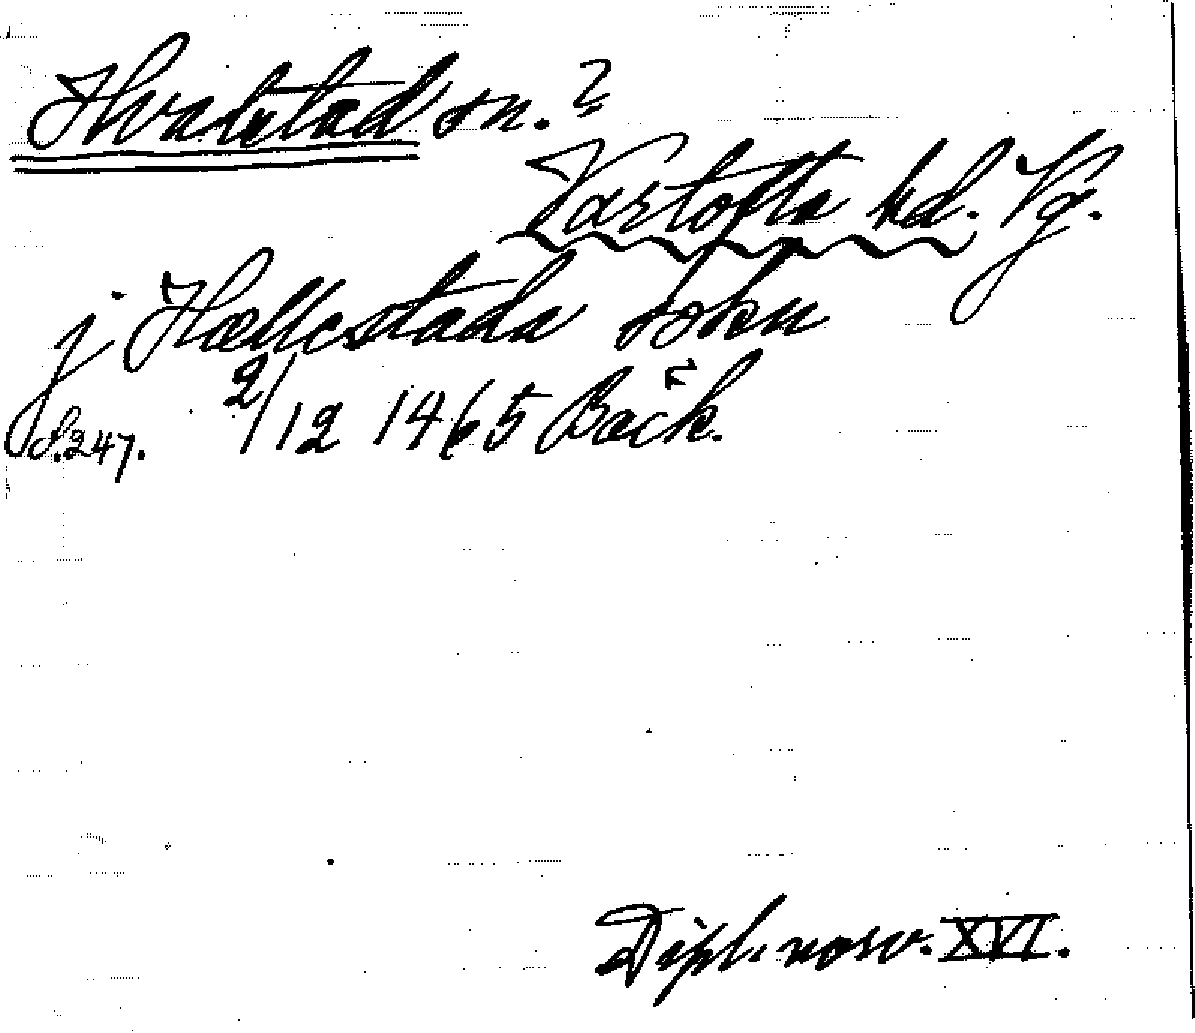 Hvalstad sn. ?
Vartofta hd. Vg.
j Hællestada sokn
S. 247. 2/12 1465 Bäck.
Dipl. norv. XVI.